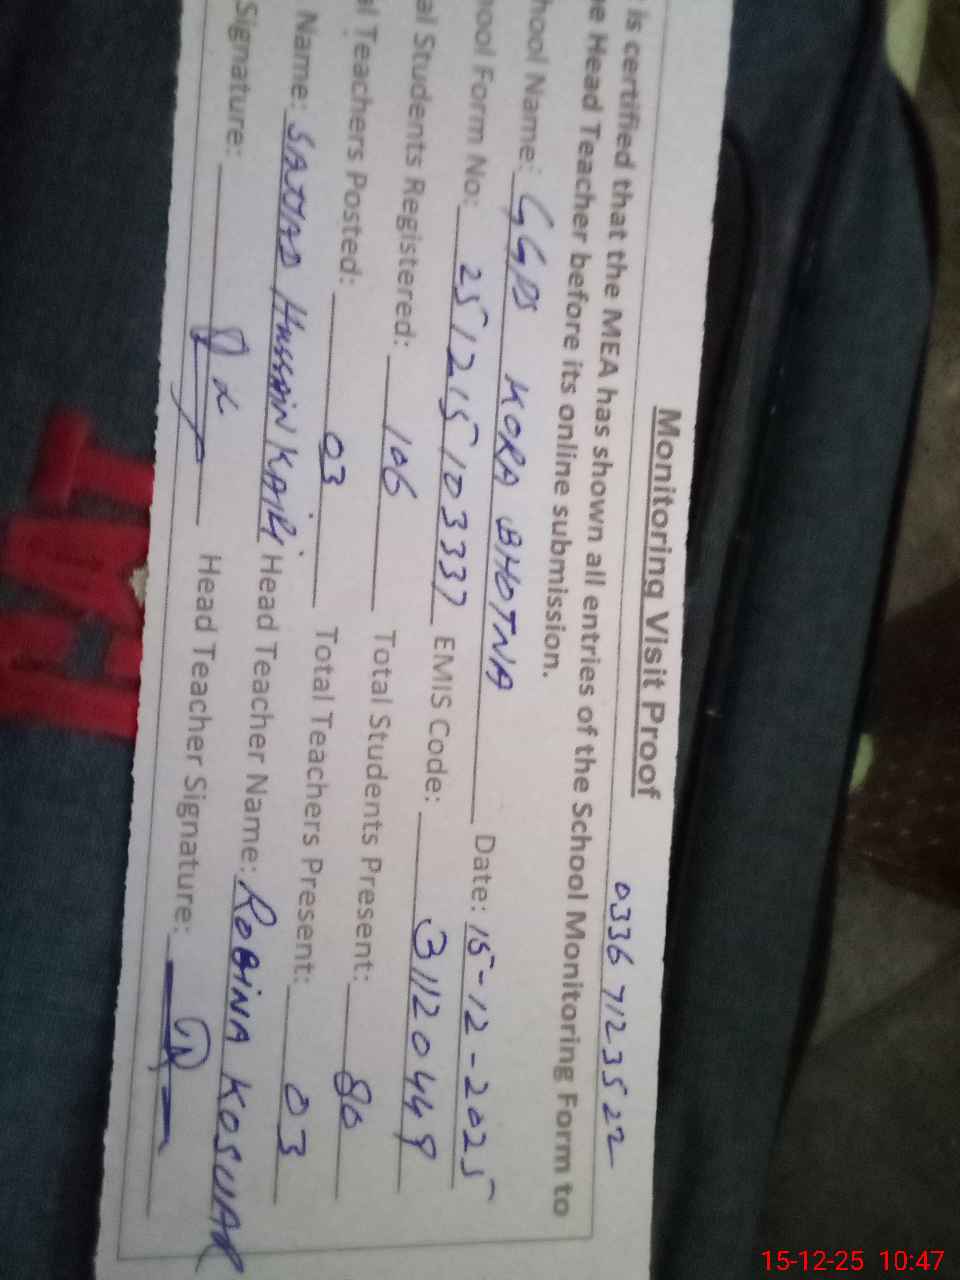 Monitoring Visit Proof
0336 7123522
is certified that the MEA has shown all entries of the School Monitoring Form to
Head Teacher before its online submission.
Name: GGPS KORA BHOTNA Date: 15-12-2025
Form No: 251215103337 EMIS Code: 31120449
Students Registered: 106 Total Students Present: 80
Teachers Posted: 03 Total Teachers Present: 03
Name: SAJJAD HUSSAIN Head Teacher Name: ROBINA KOSUAR
Signature: Head Teacher Signature:
15-12-25 10:47